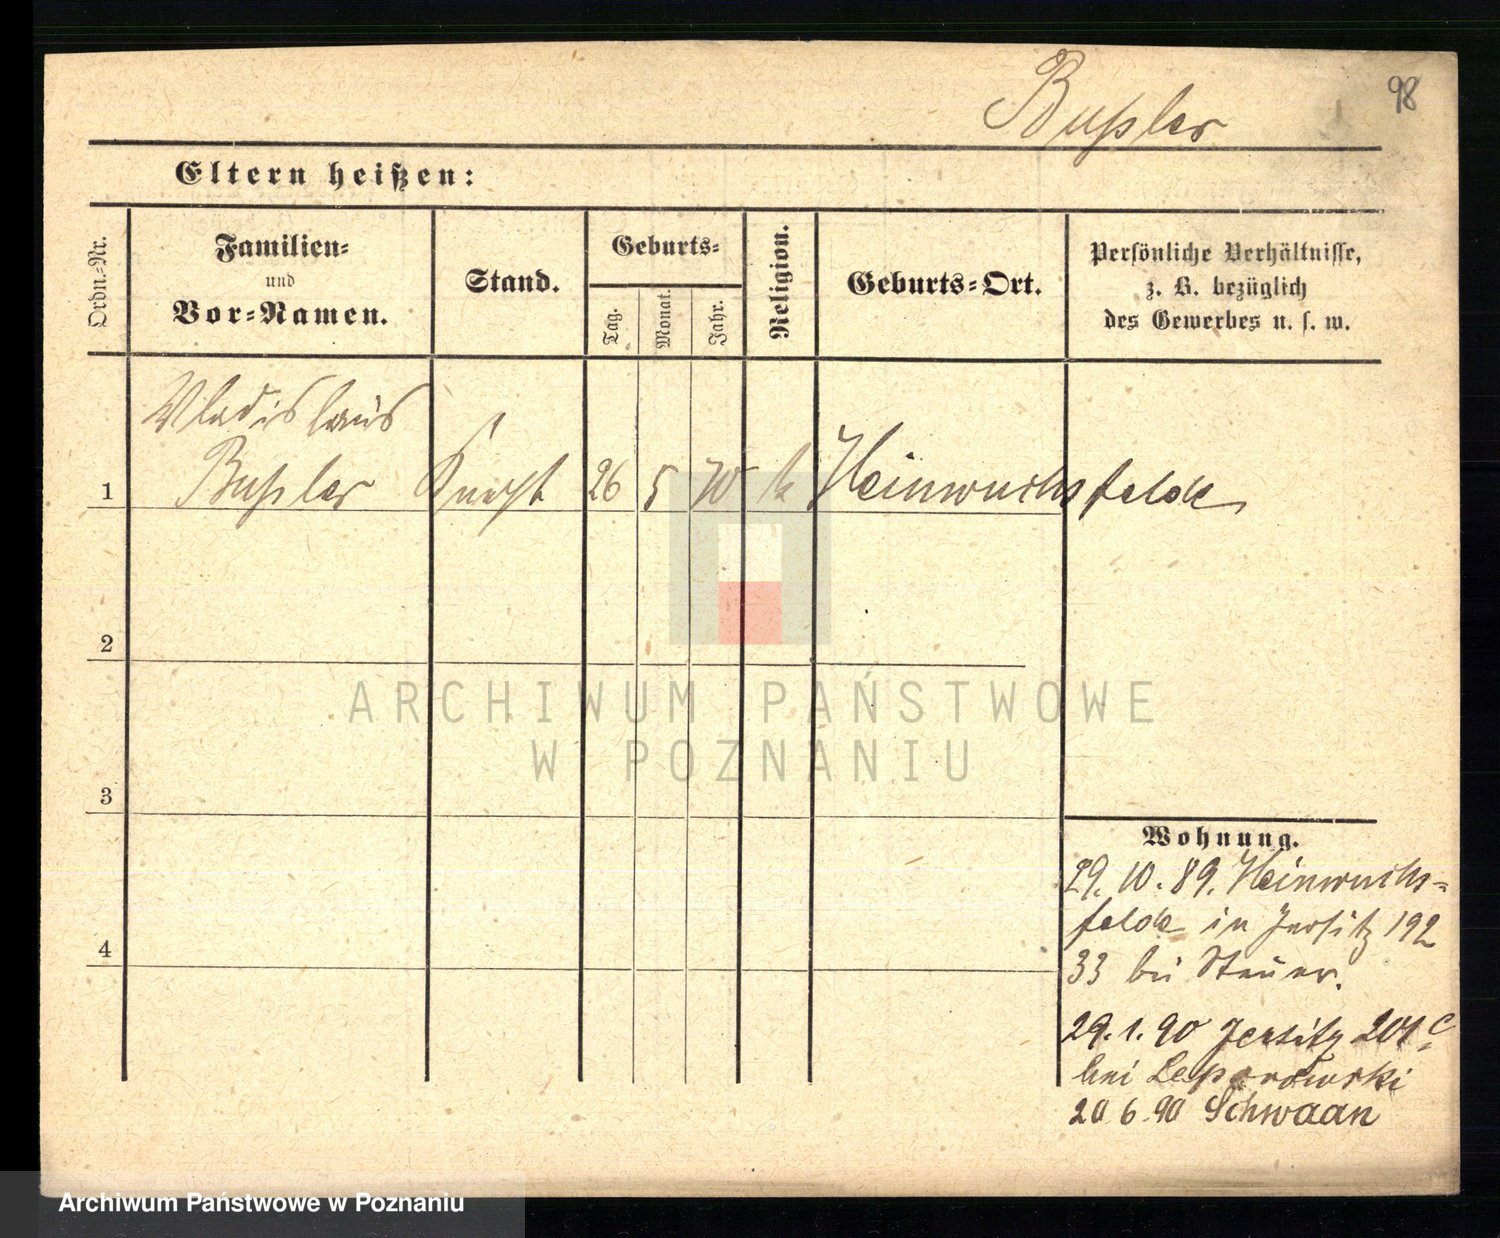 98
Bußler
Eltern heißen:
Ordn.-Nr.
Familien-
und
Vor-Namen.
Stand.
Geburts-
Tag.
Monat.
Jahr.
Religion.
Geburts-Ort.
Persönliche Verhältnisse,
z. B. bezüglich
des Gewerbes u. s. w.
Wladislaus
1 Bußler Knecht 26 5 70 k Heinwuchsfelde
2
3
4
Wohnung.
29. 10. 89. Heinwuchs-
felde in Jersitz 192
33 bei Steuer.
29. 1. 90 Jersitz 201c
bei Leporowski
20 6. 90 Schwaan
ARCHIWUM PAŃSTWOWE
W POZNANIU
Archiwum Państwowe w Poznaniu